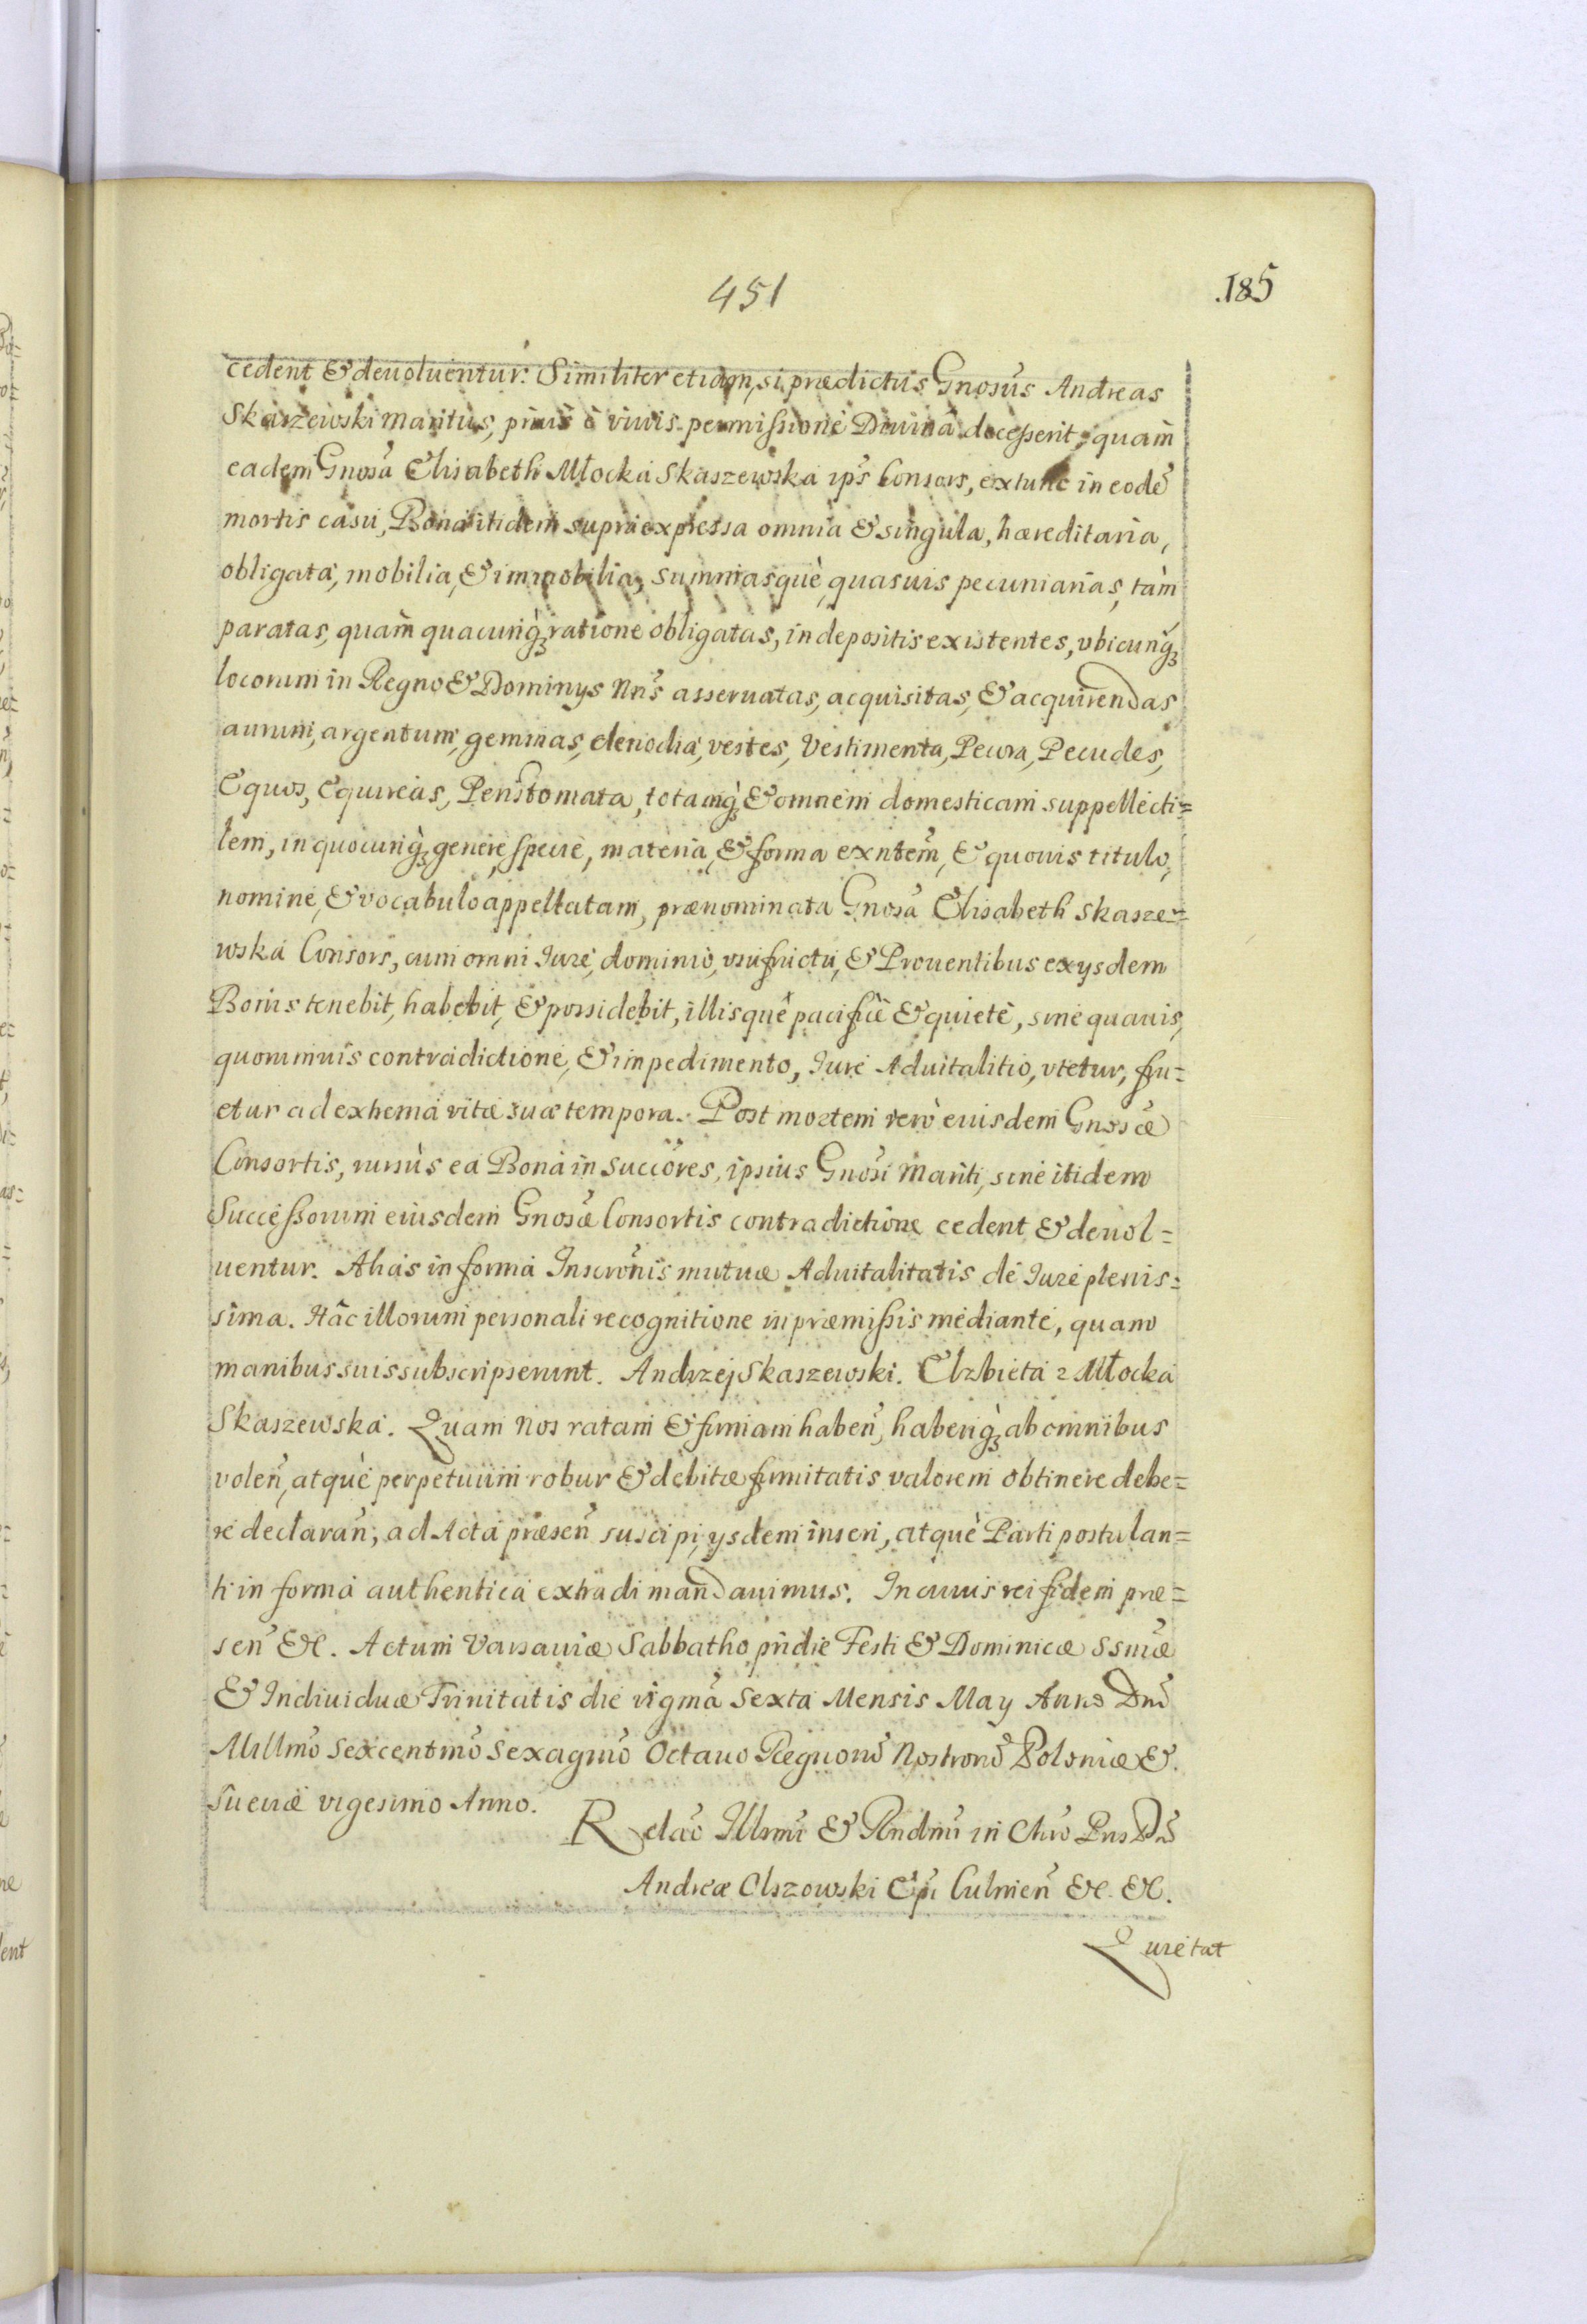 451
.185
cedent & deuoluentur. Similiter etiam, si prædictus Gnosus Andreas
Skaszewski Maritus, prius è viuis permissione Diuina decesserit, quam
eadem Gnosa Elisabeth Młocka Skaszewska ips Consors, extunc in eode
mortis casu, Bona itidem supraexpressa omnia & singula, hæreditaria,
obligata, mobilia, & immobilia, summasquè, quasuis pecuniarias, tàm
paratas, quàm quacunq; ratione obligatas, in depositis existentes, vbicunq;
locorum in Regno & Dominys Nris asseruatas, acquisitas, & acquirendas
aurum, argentum, gemmas, clenodia, vestes, Vestimenta, Pecora, Pecudes,
Equos, Equireas, Penstomata, totamq; & omnem domesticam suppellecti=
lem, in quocunq; genere, specie, materia, & forma exntem, & quouis titulo,
nomine, & vocabulo appellatam, prænominata Gnosa Elisabeth Skasze=
wska Consors, cum omni Iure, dominio, vsufructu, & Prouentibus ex ysdem
Bonis tenebit, habebit, & possidebit, illisquè pacificè & quietè, sine quauis,
quorumuis contradictione, & impedimento, Iure Aduitalitio, vtetur, fru=
etur ad extrema vitæ suæ tempora. Post mortem verò eiusdem Gnosæ
Consortis, rursùs ea Bona in succöres, ipsius Gnosi Mariti, sine itidem
Successorum eiusdem Gnosæ Consortis contradictione cedent & deuol=
uentur. Alias in forma Inscronis mutuæ Aduitalitatis de Iure plenis=
sima. Hâc illorum personali recognitione in præmissis mediante, quam
manibus suis subscripserunt. Andrzej Skaszewski. Elzbieta z Młocka
Skaszewska. Quam Nos ratam & firmam haben, haberiq; ab omnibus
volen, atquè perpetuum robur & debitæ firmitatis valorem obtinere debe=
re declaran, ad Acta præsen suscipi, ysdem inseri, atquè Parti postulan=
ti in forma authentica extradi mandauimus. In cuius rei fidem præ=
sen &c. Actum Varsauiæ Sabbatho pridie Festi & Dominicæ SSmæ
& Indiuiduæ Trinitatis die vigma Sexta Mensis May Anno Dni
Millmo Sexcentmo Sexagmo Octauo Regnoru Nostroru Poloniæ &.
Sueciæ vigesimo Anno.
Relao Illmi & Rndmi in Chro Pris Dni
Andreæ Olszowski Epi Culmen &c. &c.
Quietat